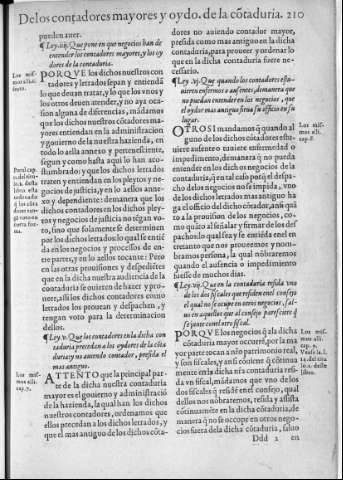 De los contadores mayores y oydo. de la cōtaduria. 210
pueden auer.
¶ Ley .iiij. Que pone en que negocios han de
entender los contadores mayores, y los oy
dores de la contaduria.
Los mis
mos alli.
PORQVE los dichos nuestros con
tadores y letrados sepan y entiendā
lo que deuen tratar, y lo que los vnos y
los otros deuen atender, y no aya oca-
sion alguna de diferencias, mādamos
que los dichos nuestros cōtadores ma-
yores entiendan en la administracion
y gouierno de la nuestra hazienda, en
todo lo a ella annexo y perteneciente,
segun y como hasta aqui lo han aco-
stumbrado: y que los dichos letrados
traten y entiendan en los pleytos y ne-
gocios de justicia, y en lo a ellos anne-
xo y dependiente: demanera que los
dichos contadores en los dichos pley-
tos y negocios de justicia no tēgan vo-
to, sino que solamente se determinen
por los dichos letrados lo qual se entiē
da en los negocios y processos de en-
tre partes, y en lo a ellos tocante: Pero
en las otras prouisiones y despedientes
que en la dicha nuestra audiencia de la
contaduria se ouieren de hazer y pro-
ueer, assi los dichos contadores como
letrados los prouean y despachen, y
tengan voto para la determinacion
dellos.
¶ Ley .v. Que los contadores en la dicha con
taduria precedan a los oydores de la cōta
duria y no auiendo contador, presida el
mas antiguo.
Los mis
mos alli.
cap.7.
ATTENTO que la principal par-
te de la dicha nuestra contaduria
mayor es el gouierno y administraciō
de la hazienda, la qual han los dichos
nuestros contadores, ordenamos que
ellos precedan a los dichos letrados, y
que el mas antiguo de los dichos cōta-
dores no auiendo contador mayor,
presida como mas antiguo en la dicha
contaduria, para proueer y ordenar lo
que en la dicha contaduria fuere ne-
cessario.
¶ Ley .vj. Que quando los contadores estu-
uieren enfermos o ausentes, demanera que
no puedan entender en los negocios, que
el oydor mas antiguo firua su officio en su
lugar.
Los mis
mos alli.
cap.8.
OTROSI mandamos q̄ quando al
guno de los dichos cōtadores estu-
uiere ausente o tuuiere enfermedad o
impedimento, demanera q̄ no pueda
entender en los dichos negocios de la
contaduria, q̄ en tal caso porq̄ el despa-
cho de los negocios no se impida, vno
de los dichos letrados mas antiguo ha
ga el officio del dicho cōtador, assi quā
to a la prouision de los negocios, co-
mo quāto al señalar y firmar de los des
pachos: lo qual sea y se entienda enel en
tretanto que nos proueemos y nom-
bramos persona, la qual nōbraremos
quando el ausencia o impedimiento
fuesse de muchos dias.
¶ Ley .vij. Que en la contaduria resida vno
de los dos fiscales que residen enel consejo
el qual no se ocupe en otros negocios, sal-
uo en aquellos que al consejo pareciere q̄
se junte conel otro fiscal.
Los mis
mos alli.
cap.9.
PORQVE los negocios q̄ a la dicha
cōtaduria mayor occurrē, por la ma
yor parte tocan a nr̄o patrimonio real,
y son fiscales, y assi conuiene q̄ cōtinua
mente en la dicha nr̄a cōtaduria resi-
da vn fiscal, mādamos que vno de los
dos fiscales q̄ residē enel consejo, qual
dellos nos nōbraremos, resida y assista
cōtinuamēte en la dicha cōtaduria, de
manera q̄ no se occupe en otros nego-
cios fuera de la dicha cōtaduria, saluo
Ddd 2 en